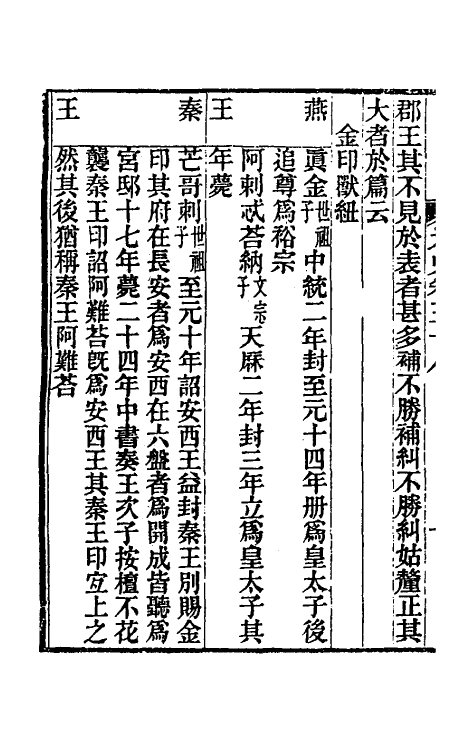 郡王其不見於表者甚多補不勝補糾不勝糾姑釐正其
大者於篇云
金印獸紐
燕 真金世祖子中統二年封至元十四年册爲皇太子後
追尊爲裕宗
王 阿剌忒荅納文宗子天厤二年封三年立爲皇太子其
年薨
秦 芒哥剌世祖子至元十年詔安西王益封秦王別賜金
印其府在長安者爲安西在六盤者爲開成皆聽爲
宮邸十七年薨二十四年中書奏王次子按檀不花
襲秦王印詔阿難荅旣爲安西王其秦王印宐上之
王 然其後猶稱秦王阿難荅